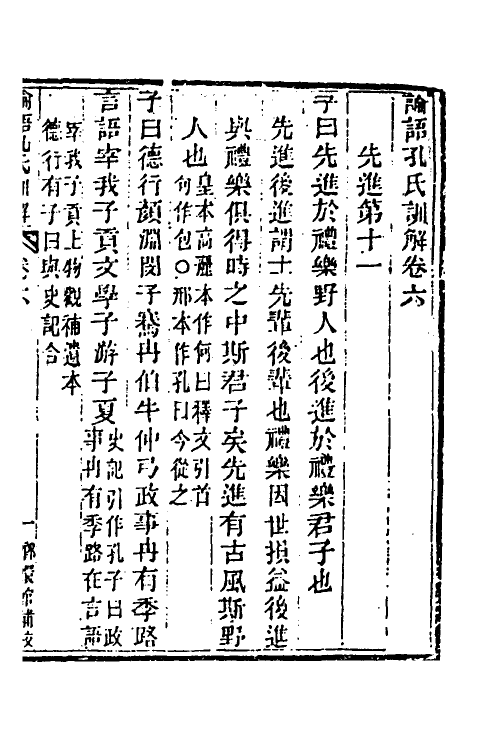 論語孔氏訓解卷六
先進第十一
子曰先進於禮樂野人也後進於禮樂君子也
先進後進謂士先輩後輩也禮樂因世損益後進
與禮樂俱得時之中斯君子矣先進有古風斯野
人也皇本高麗本作何曰釋文引首
句作包○邢本作孔曰今從之
子曰德行顏淵閔子騫冉伯牛仲弓政事冉有季路
言語宰我子貢文學子游子夏史記引作孔子曰政
事冉有季路在言語
宰我子貢上物觀補遺本
德行有子曰與史記合
論語孔氏訓解 卷六 一